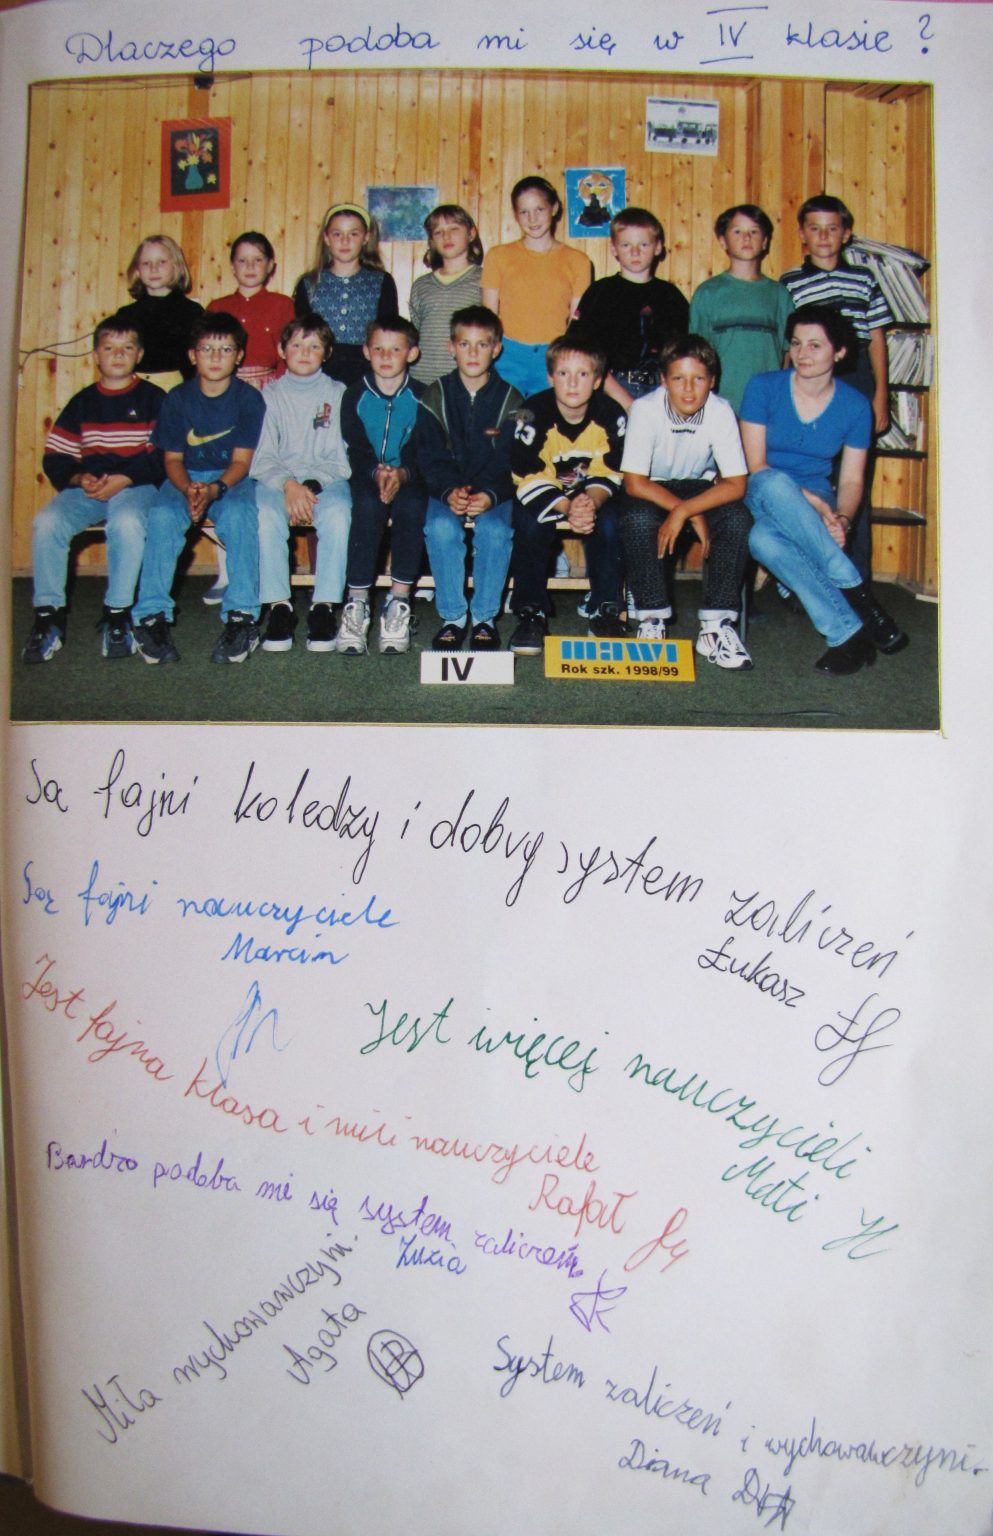 Dlaczego podoba mi się w IV klasie?
AIR
IV
Rok szk. 1998/99
Są fajni koledzy i dobry system zaliczeń
Łukasz
Są fajni nauczyciele
Marcin
Jest więcej nauczycieli
Mati
Jest fajna klasa i mili nauczyciele
Rafał
Bardzo podoba mi się system zaliczeń.
Zuzia
Miła wychowawczyni.
Agata
System zaliczeń i wychowawczyni.
Diana